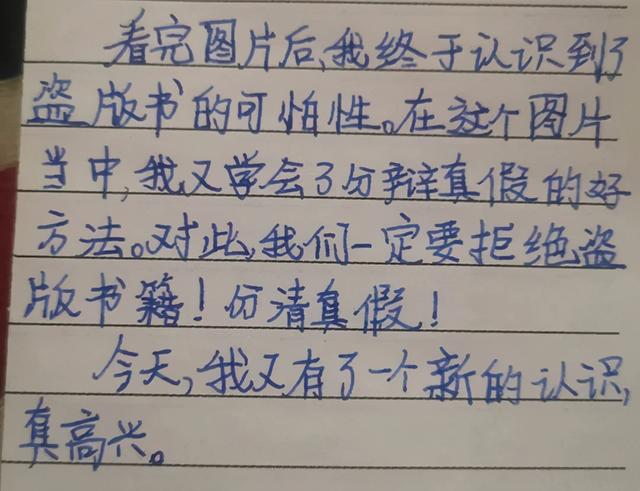 看完图片后,我终于认识到了
盗版书的可怕性。在这个图片
当中,我又学会了分辩真假的好
方法。对此,我们一定要拒绝盗
版书籍!分清真假!
今天,我又有了一个新的认识,
真高兴。